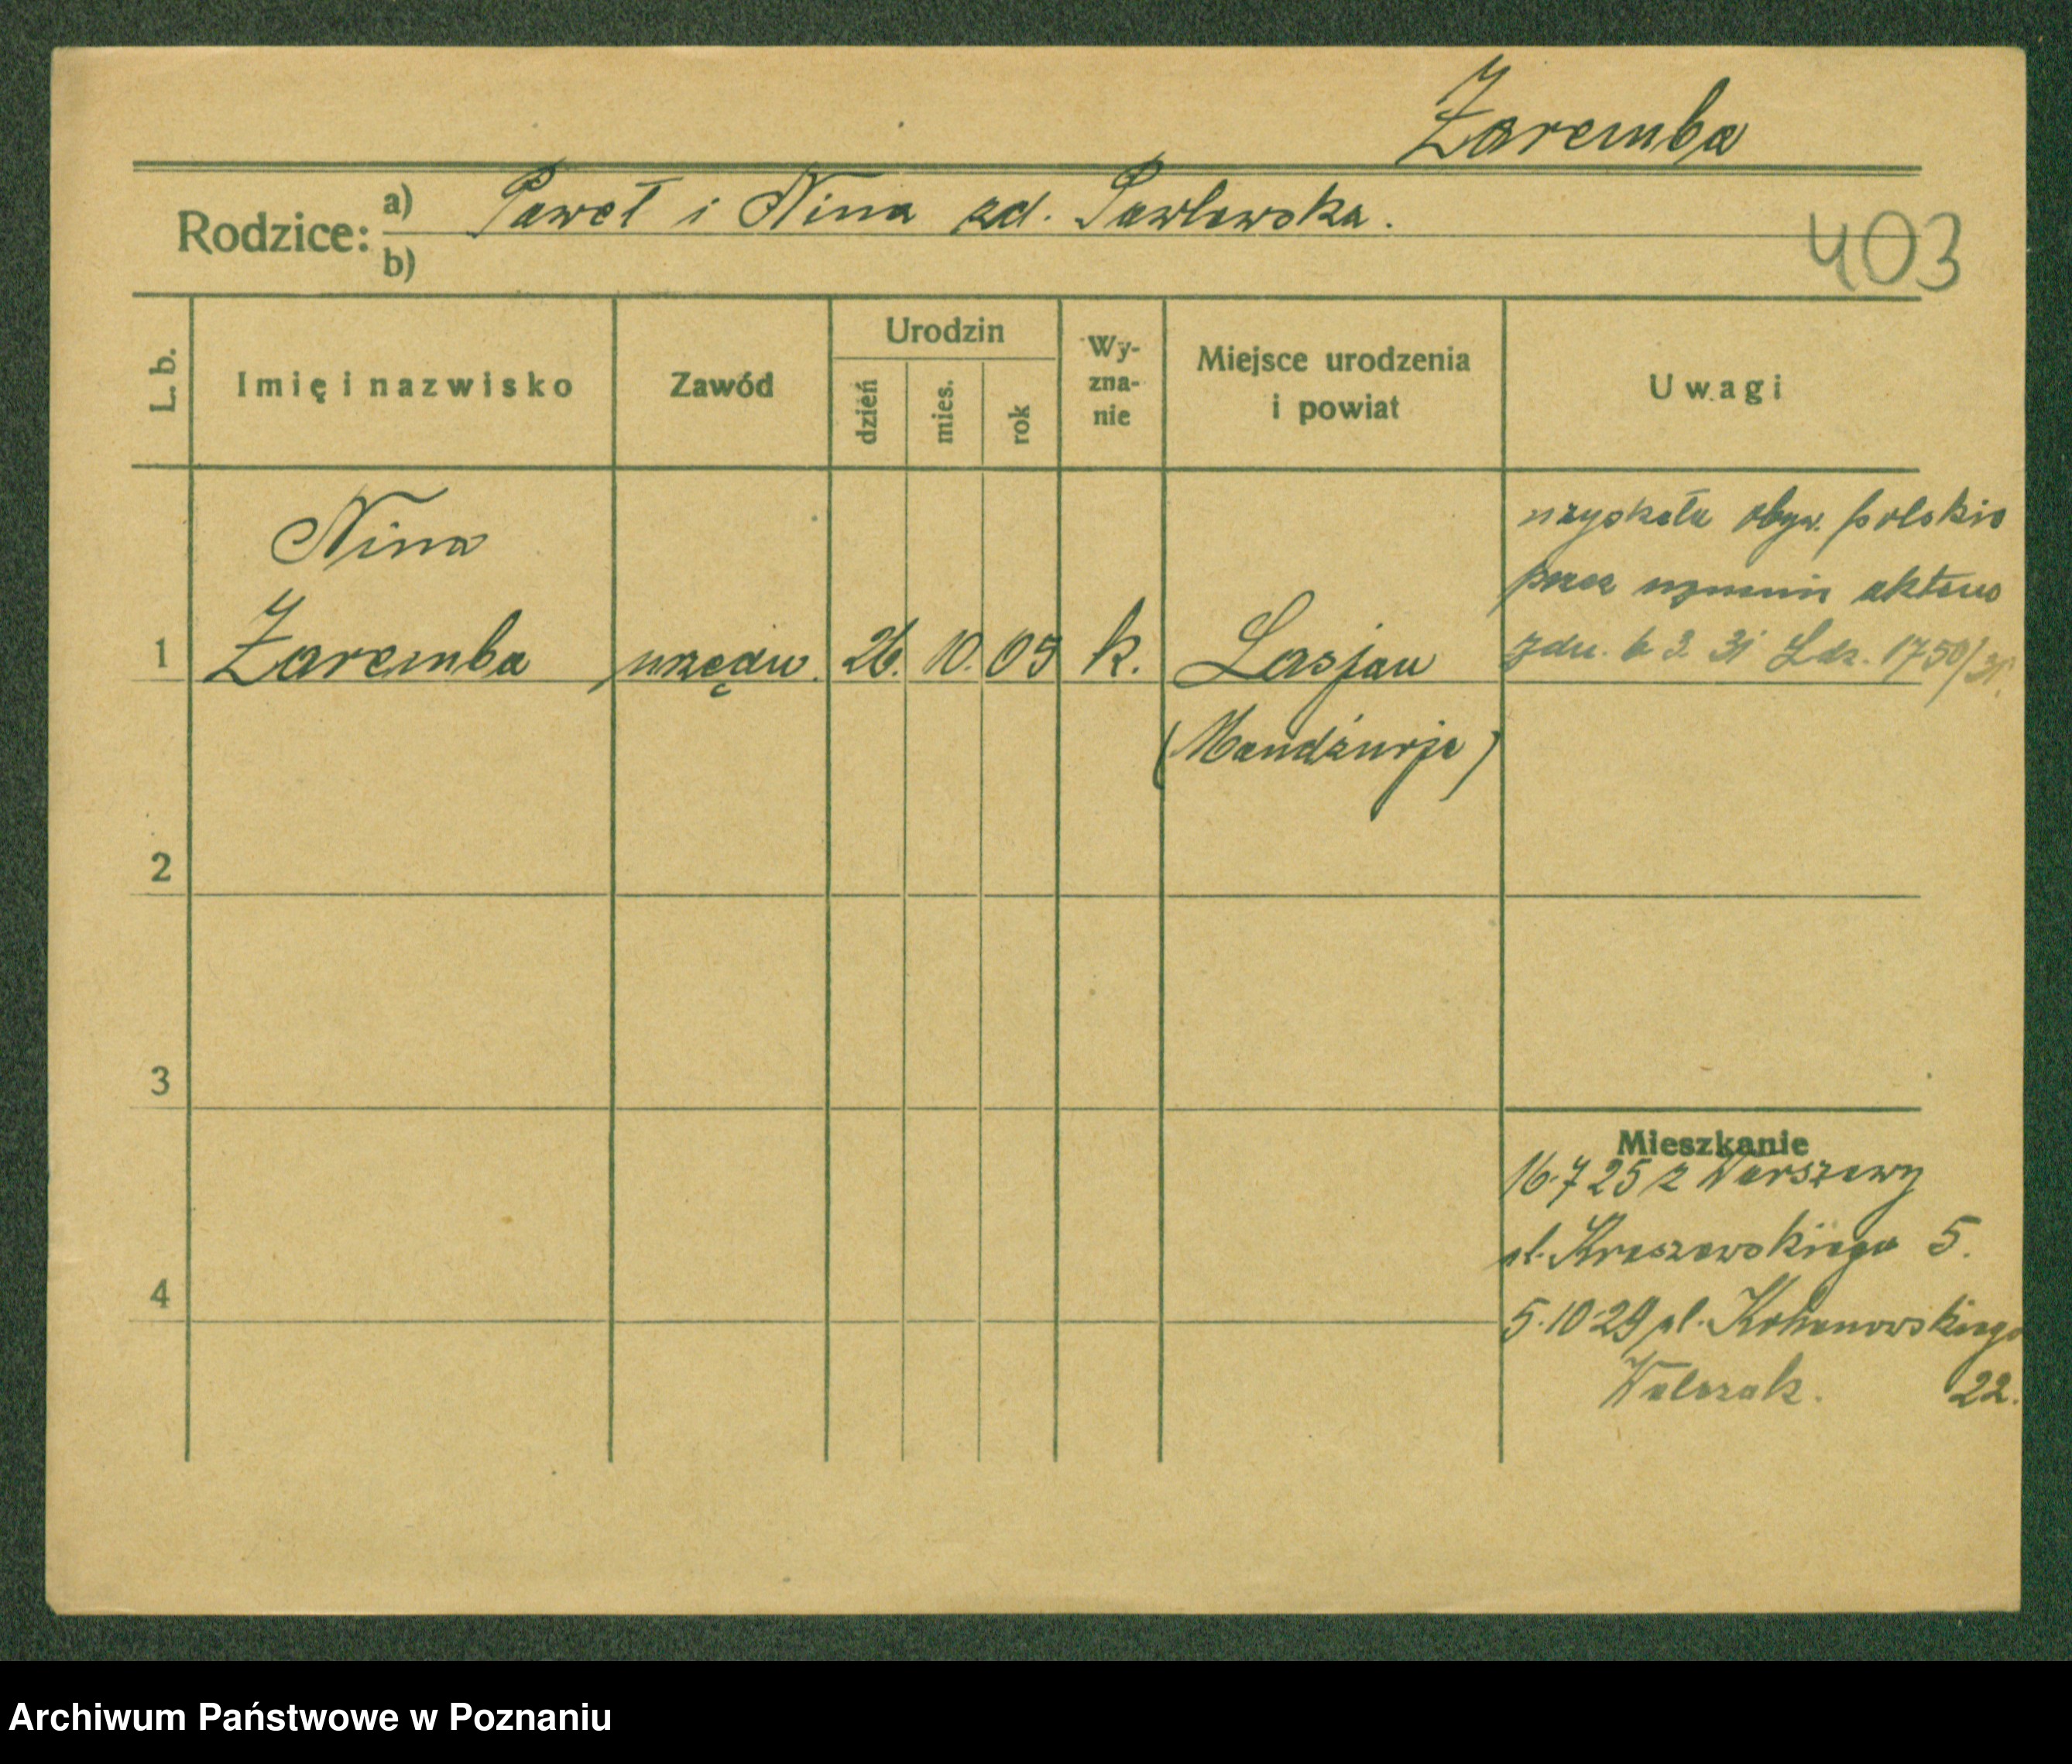 Zaremba
Rodzice: a) Paweł i Nina zd. Pawlowska.
b)
403
L. b.
Imię i nazwisko
Zawód
Urodzin
dzień
mies.
rok
Wy-
zna-
nie
Miejsce urodzenia
i powiat
Uwagi
1
Nina
Zaremba
urzędn.
26.
10.
05
k.
Lasjan
(Mandżurja)
uzyskała obyw. polskie
przez uznanie aktem
zdn. 6 3 31 Ldz. 1750/31.
2
3
4
Mieszkanie
16.7 25 z Warszawy
pl. Kraszewskiego 5.
5.10 29 pl. Kochanowskiego
Walczak. 22.
Archiwum Państwowe w Poznaniu